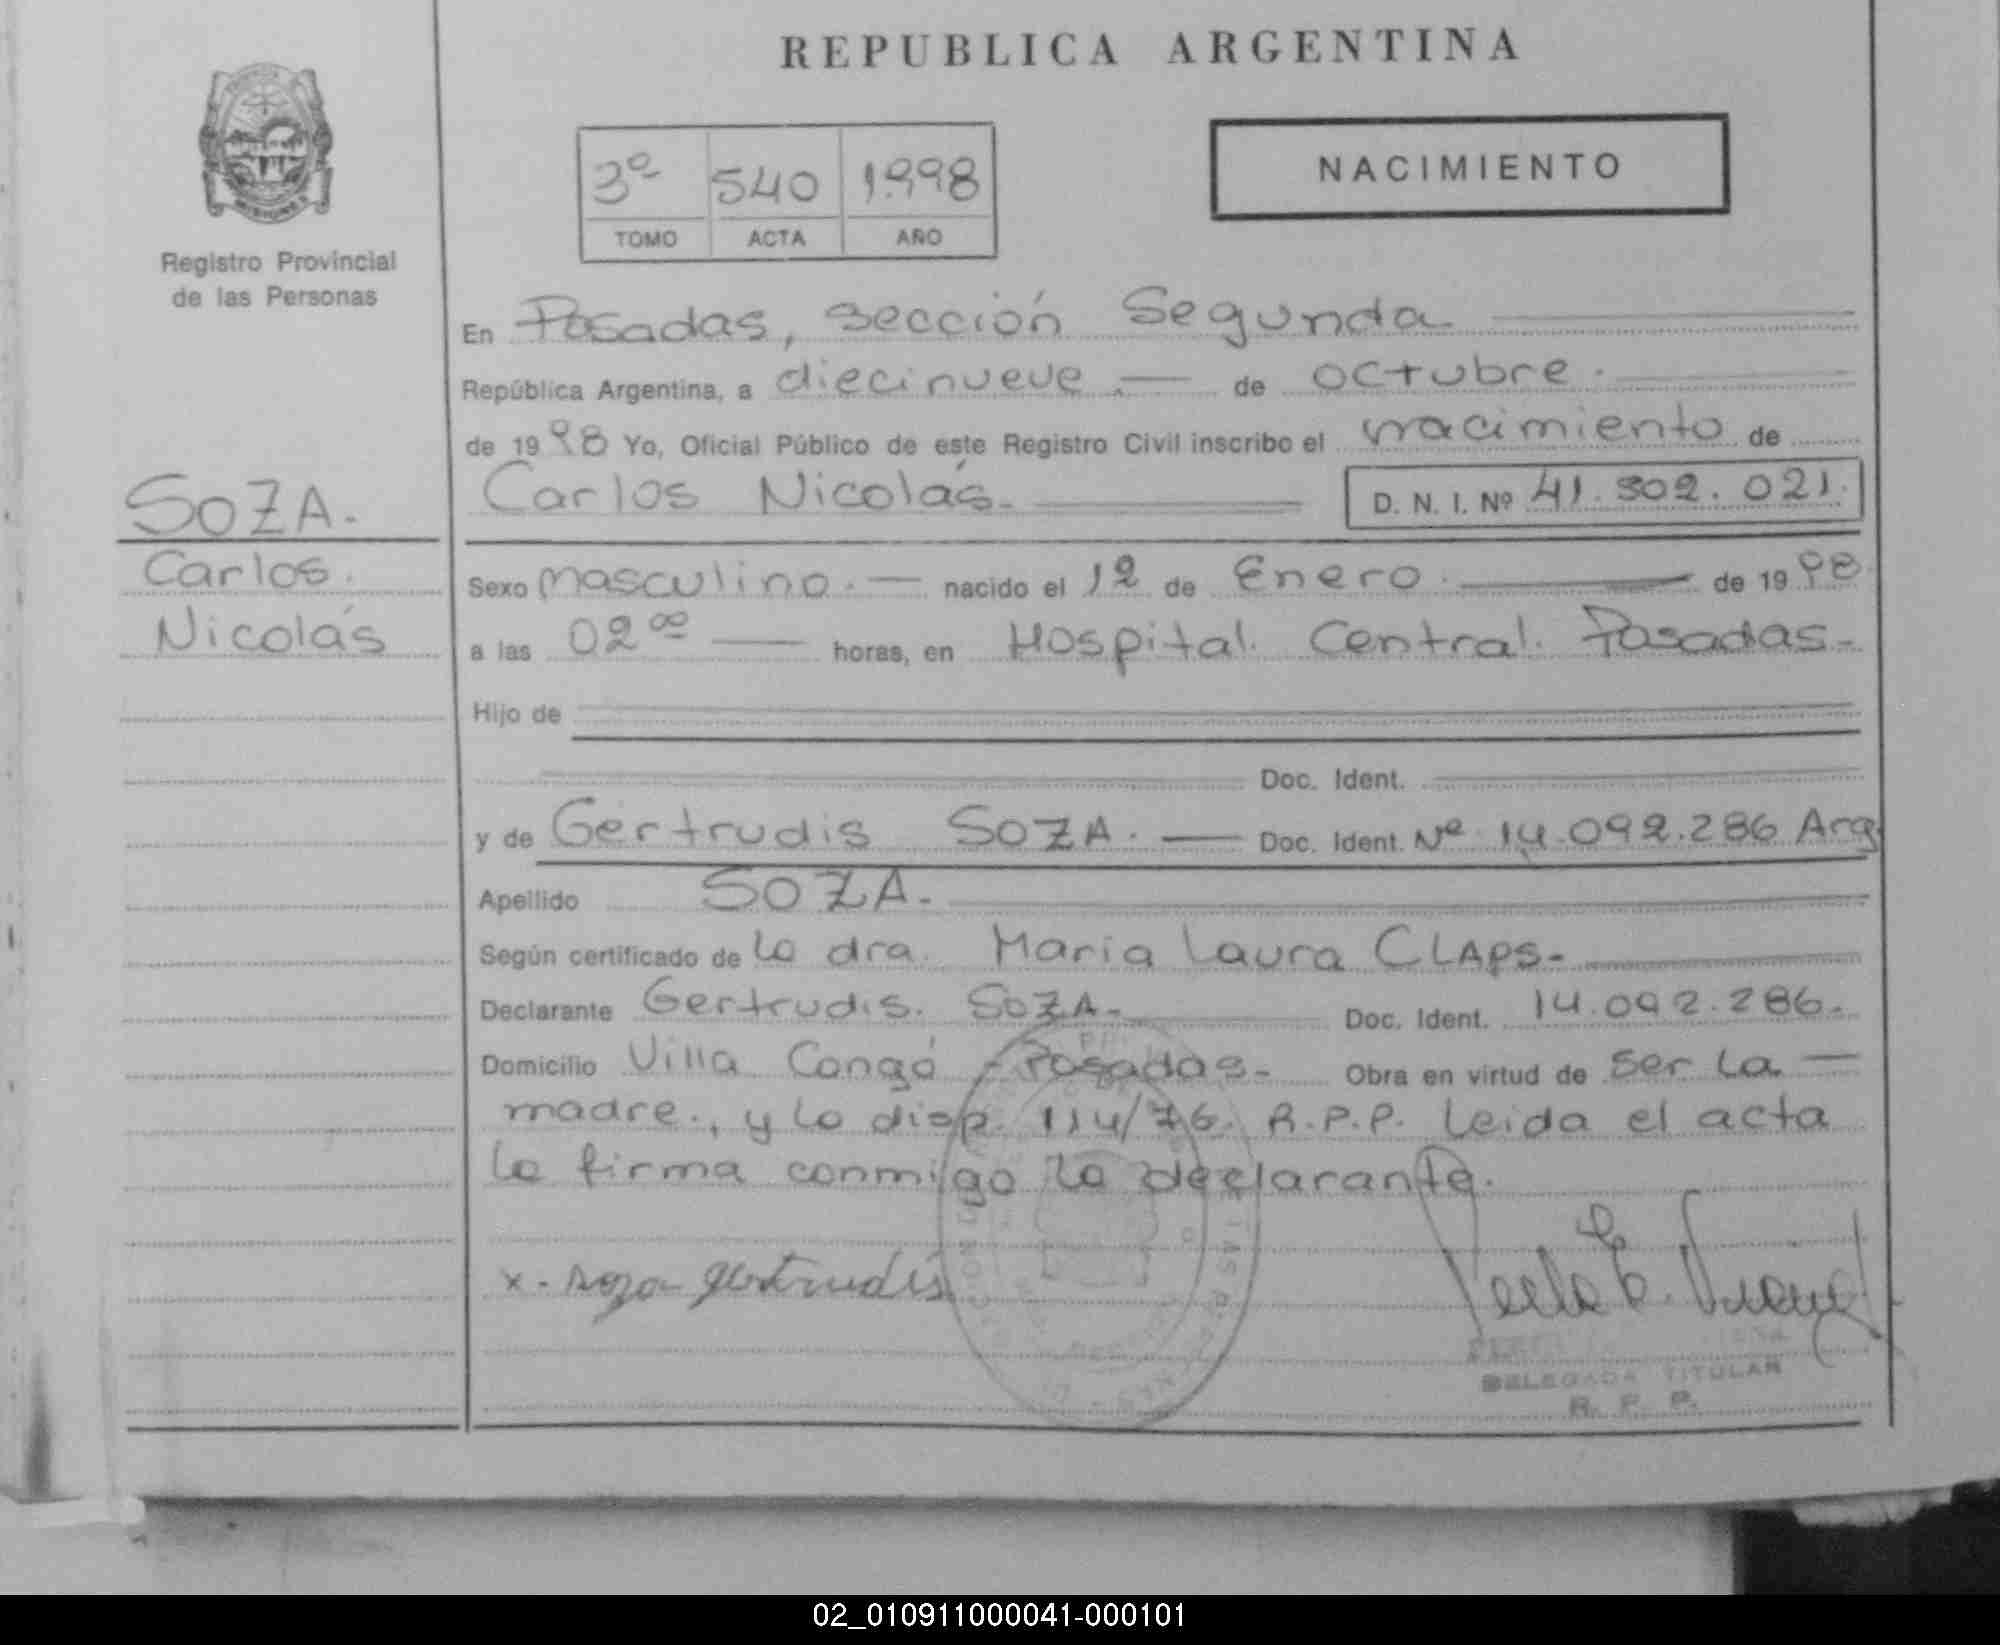 REPUBLICA ARGENTINA
MISIONES
Registro Provincial
de las Personas
3º 540 1.998
TOMO ACTA AÑO
NACIMIENTO
En Posadas, sección Segunda
República Argentina, a diecinueve.— de octubre.
de 1998 Yo, Oficial Público de este Registro Civil inscribo el nacimiento de
SOZA.
Carlos.
Nicolás
Carlos Nicolás. D. N. I. Nº 41.302.021.
Sexo masculino.— nacido el 12 de Enero. de 1998
a las 02 ºº — horas, en Hospital. Central. Posadas-
Hijo de
Doc. Ident.
y de Gertrudis SOZA. — Doc. Ident. Nº 14.092.286 Arg.
Apellido SOZA.
Según certificado de la dra. Maria Laura CLAPS.
Declarante Gertrudis. SOZA. Doc. Ident. 14.092.286.
Domicilio Villa Congó - Posadas- Obra en virtud de ser la —
madre., y la disp. 114/76. R.P.P. Leida el acta
la firma conmigo la declarante.
x. Soza Gertrudis
DELEGADA TITULAR
R. P. P.
02_010911000041-000101